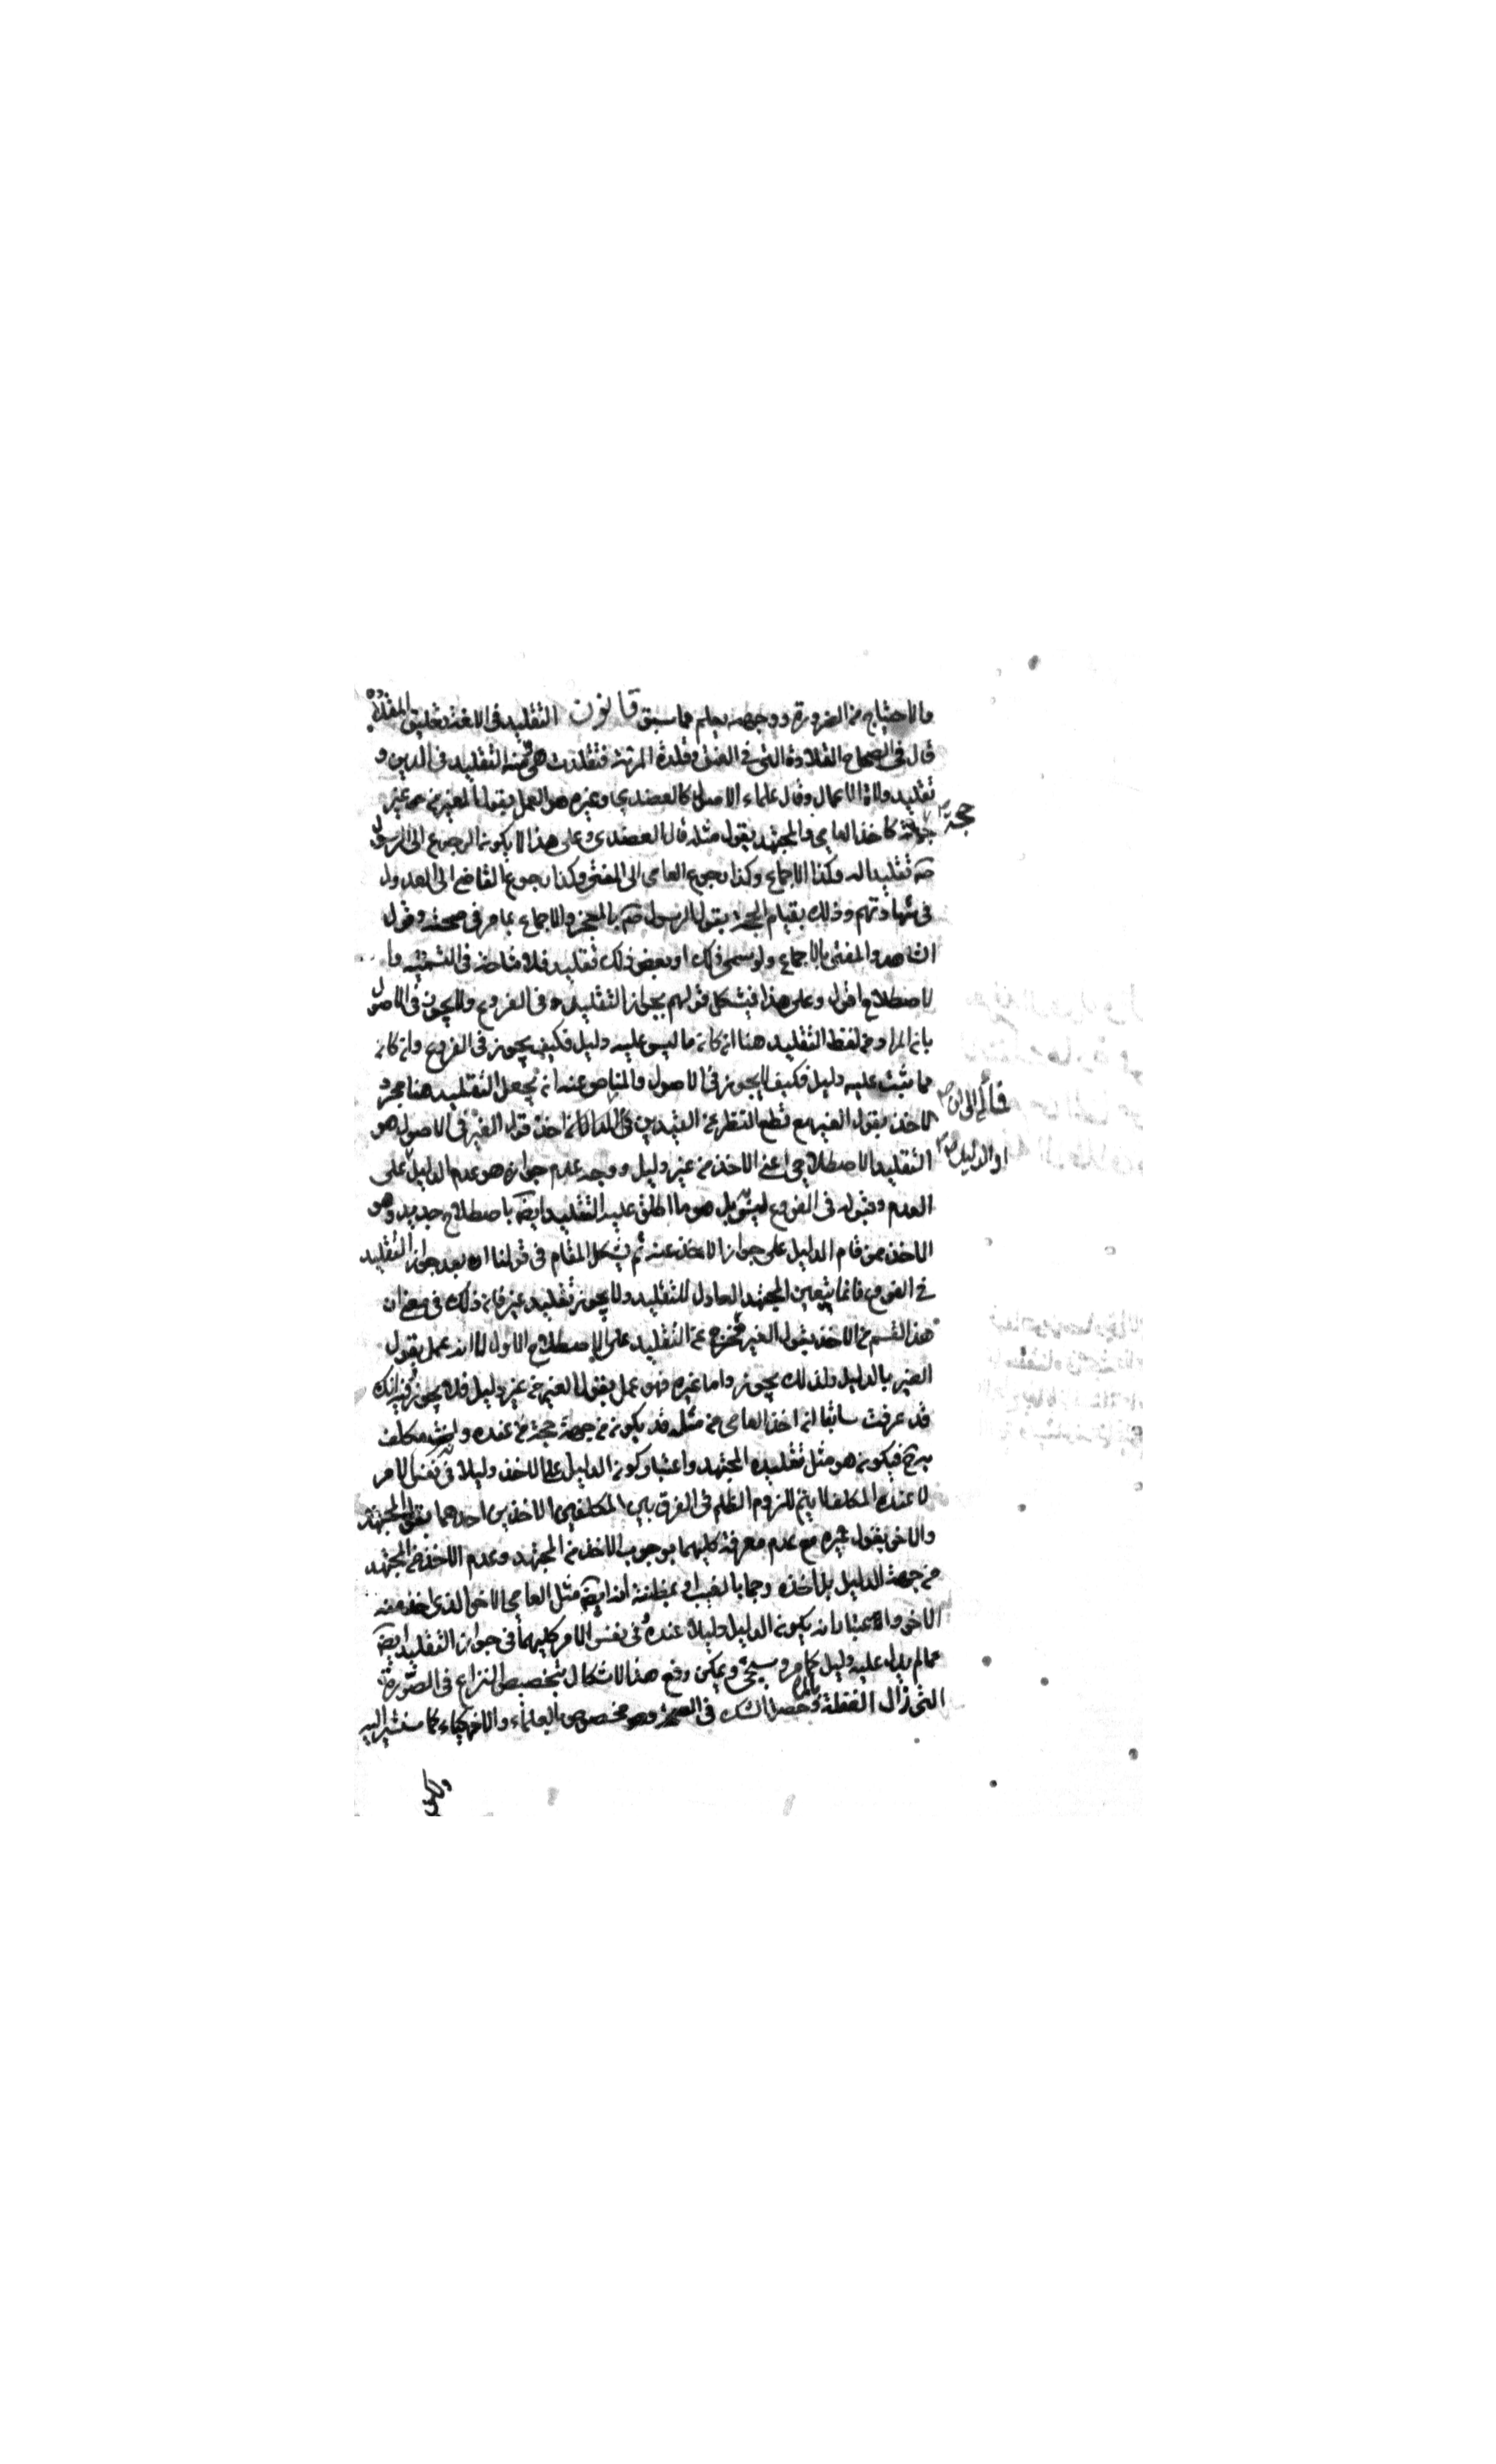 والاحتياج من الضرورة ووجهه يعلم مما سبق قانون التقليد في اللغة تعليق القلادة
قال في الصحاح القلادة التي في العنق وقلدت المرئة فتقلدت هي ومنه التقليد في الدين و
تقليد ولاة الاعمال وقال علماء الاصول كالعضدي وغيره هو العمل بقول الغير من غير
حجة
كاخذ العامي والمجتهد بقول مثله قال العضدي وعلى هذا لا يكون الرجوع الى الرسول
ص تقليدا له وكذا الاجماع وكذا رجوع العامي الى المفتي وكذا رجوع القاضي الى العدول
في شهادتهم وذلك بقيام الحجة بقول الرسول ص بالمعجز والاجماع بما مر في حجيته وقول
الشاهد والمفتي بالاجماع ولو سمي ذلك او بعض ذلك تقليدا فلا مشاحة في التسمية وا
لاصطلاح اقول وعلى هذا فيشكل قولهم يجوز التقليد في الفروع ولا يجوز في الاصول
بان المراد من لفظ التقليد هنا ان كان ما ليس عليه دليل فكيف يجوز في الفروع وان كان
مما يثبت عليه دليل فكيف لا يجوز في الاصول والمناص عنه ان يجعل التقليد هنا مجرد
الاخذ بقول الغير مع قطع النظر عن القيدين
لان اخذ قول الغير في الاصول هو
او الدليل
التقليد الاصطلاحي اعني الاخذ من غير دليل ووجه عدم جوازه هو عدم الدليل على
العدم وقبوله في الفروع بل هو ما اطلق عليه التقليد ايضا باصطلاح جديد وهو
الاخذ ممن قام الدليل على جواز الاخذ عنه ثم يشكل المقام في قولنا انه بعد جواز التقليد
في الفروع فانما يتعين المجتهد العادل للتقليد ولا يجوز تقليد غيره فان ذلك في معنى ان
هذا القسم من الاخذ بقول الغير مخرج عن التقليد على الاصطلاح الاول لانه عمل بقول
الغير بالدليل ولذلك يجوز واما غيره فهو عمل بقول الغير من غير دليل فلا يجوز وفيه انك
قد عرفت سابقا ان اخذ العامي من مثله قد يكون من جهة حجة عنده وليس مكلف
به ح فيكون هو مثل تقليده المجتهد واعتبار كون الدليل على الاخذ دليلا في نفس الامر
لا عند المكلف لا يتم للزوم الظلم في الفرق بين المكلفين الاخذين احدهما بقول المجتهد
والاخر بقول غيره مع عدم معرفة كليهما بوجوب الاخذ من المجتهد وعدم الاخذ من المجتهد
من جهة الدليل بل اخذه رجما بالغيب او بمظنة انه ايضا مثل العامي الاخر الذي اخذ منه
الاخر والاعتبار بان يكون الدليل دليلا عنده في نفس الامر كليهما في جواز التقليد ايضا
مما لم يدل عليه دليل كما مر وسيجيء ويمكن دفع هذا الاشكال بتخصيص النزاع في الصورة
التي زال الغفلة وحصل الشك في الصحة وهو مخصوص بالعلماء والاذكياء كما سنشير اليه